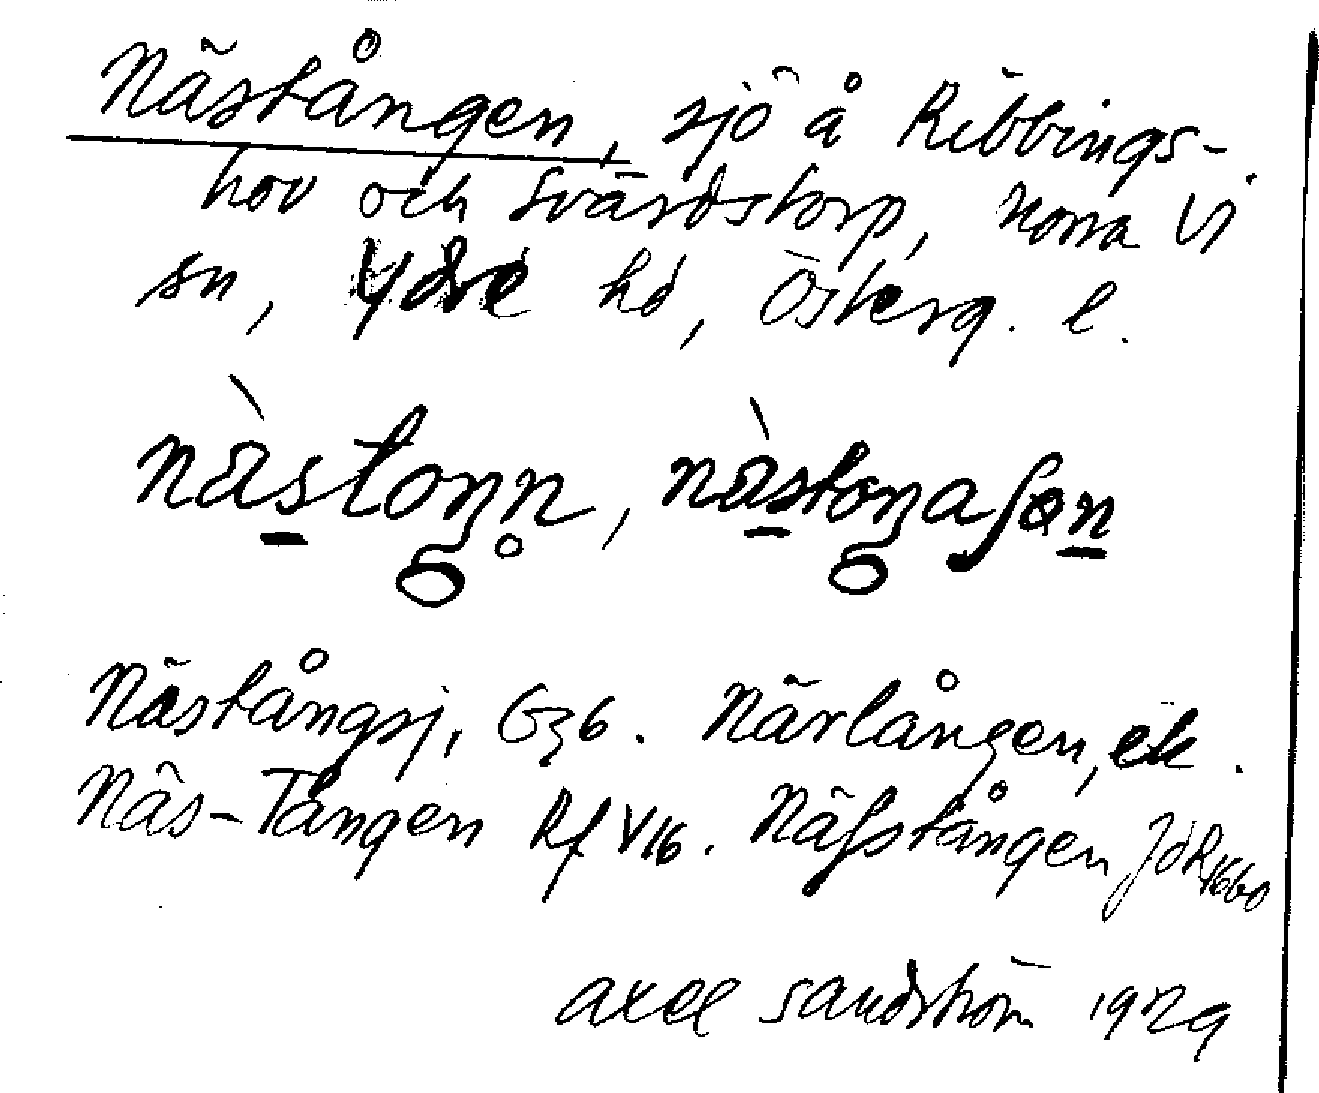 Nästången, sjö å Ribbings-
hov och Svärdstorp, Norra Vi
sn, Ydre hd, Österg. l.
nàstoŋn̥, nàstoŋaʃən
Nästångsj, Gzb. Närlången, ek.
Näs-Tången Rf V16. Näfstången JdR 1660
Axel Sandström 1929